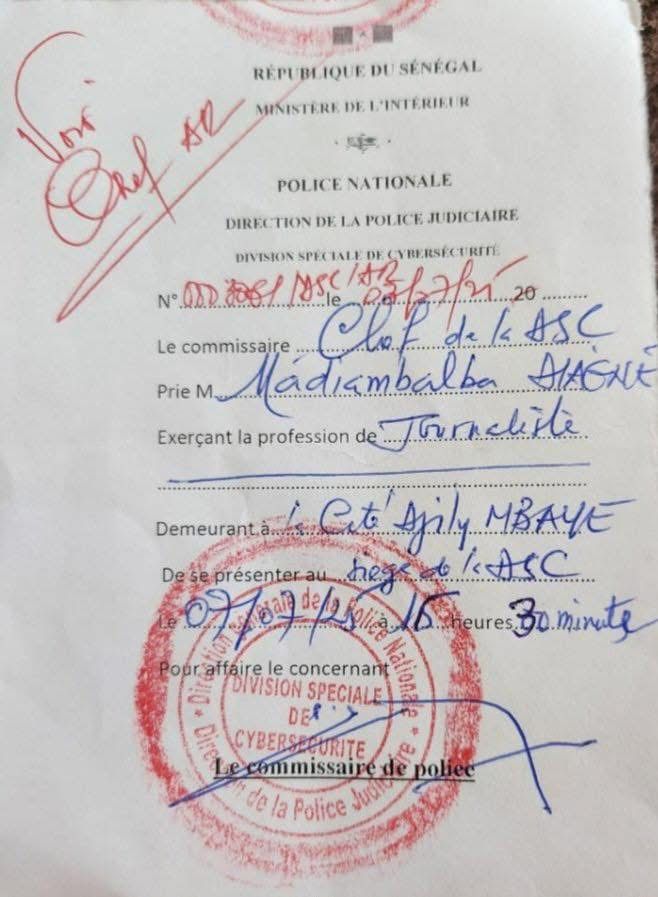 RÉPUBLIQUE DU SÉNÉGAL
MINISTÈRE DE L'INTÉRIEUR
Voir
Chef AR
POLICE NATIONALE
DIRECTION DE LA POLICE JUDICIAIRE
DIVISION SPÉCIALE DE CYBERSÉCURITÉ
N° /ASC/AR le 07/07/25 20
Le commissaire Chef de la ASC
Prie M. Madiambalba DIAGNE
Exerçant la profession de Journaliste
Demeurant à la Cité Djily MBAYE
De se présenter au siege de la ASC
Le 07/07/25 à 15 heures 30 minute
Pour affaire le concernant
Direction Générale de la Police Nationale
DIVISION SPECIALE
DE
CYBERSECURITE
Direction de la Police Judiciaire
Le commissaire de police